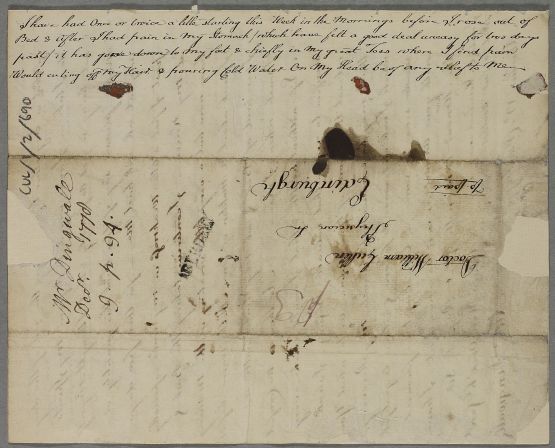 I have had Once or twice a little starting this Week in the Mornings before I rose out of
Bed & after I had pain in my Stomach which I have felt a good deal uneasy for two days
past / it has gone down to my feet & chiefly in my great Toes where I find pain
Would cutting off my Hair & pouring Cold Water On My Head be of any relief to Me
CUL/1/2/690
Mr Dingwall
Decr. 1778
9 p. 94.
ABERDEEN
To
Doctor William Cullen
Physician In
Edinburgh